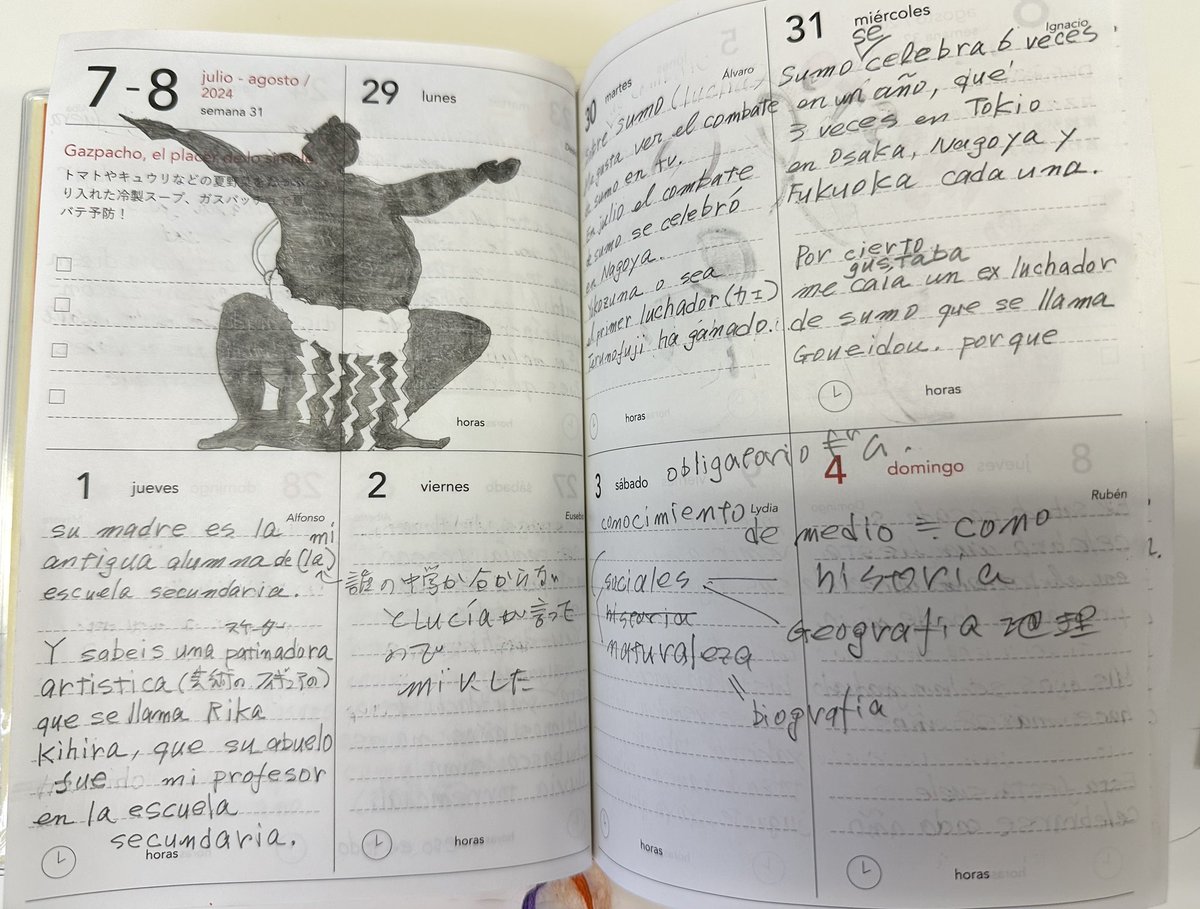 7-8
julio - agosto /
2024
semana 31
Gazpacho, el placer de lo simple
トマトやキュウリなどの夏野
り入れた冷製スープ、ガスパッチ
バテ予防！
29 lunes
horas
30 martes
Álvaro
sobre sumo (lucha
gusta ver el combate
de sumo en tv.
En julio el combate
de sumo se celebró
en Nagoya.
Yokozuna o sea
el primer luchador (カ士)
Terunofuji ha ganado.
horas
31 miércoles
Ignacio
se
Sumo celebra 6 veces
en un año, que
3 veces en Tokio
en Osaka, Nagoya y
Fukuoka cada una.
Por cierto
gustaba
me caía un ex luchador
de sumo que se llama
Goueidou. porque
horas
1 jueves
Alfonso
su madre es la
mi
antigua alumna de (la)
escuela secundaria.
スケーター
Y sabeis una patinadora
artistica (芸術の フィギュアの)
que se llama Rika
Kihira, que su abuelo
fue mi profesor
en la escuela
secundaria.
horas
2 viernes
Euseb
誰の中学か分からない
とLucíaが言って
ので
miにした
horas
3 sábado
Lydia
obligatorio
conocimiento
de medio ≒ como
sociales
historia
historia
Geografía 地理
naturaleza
biografía
horas
4 domingo
Rubén
horas